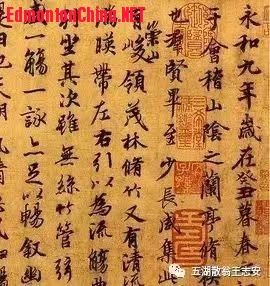 EdmontonChina.NET
永和九年歲在癸丑暮春
于會稽山陰之蘭亭脩
也群賢畢至少長咸集此
有崇山峻領茂林脩竹又有清流
暎帶左右引以為流觴曲
坐其次雖無絲竹管弦
一觴一詠亦足以暢敘幽
日也天朗氣清
五湖散翁王志安